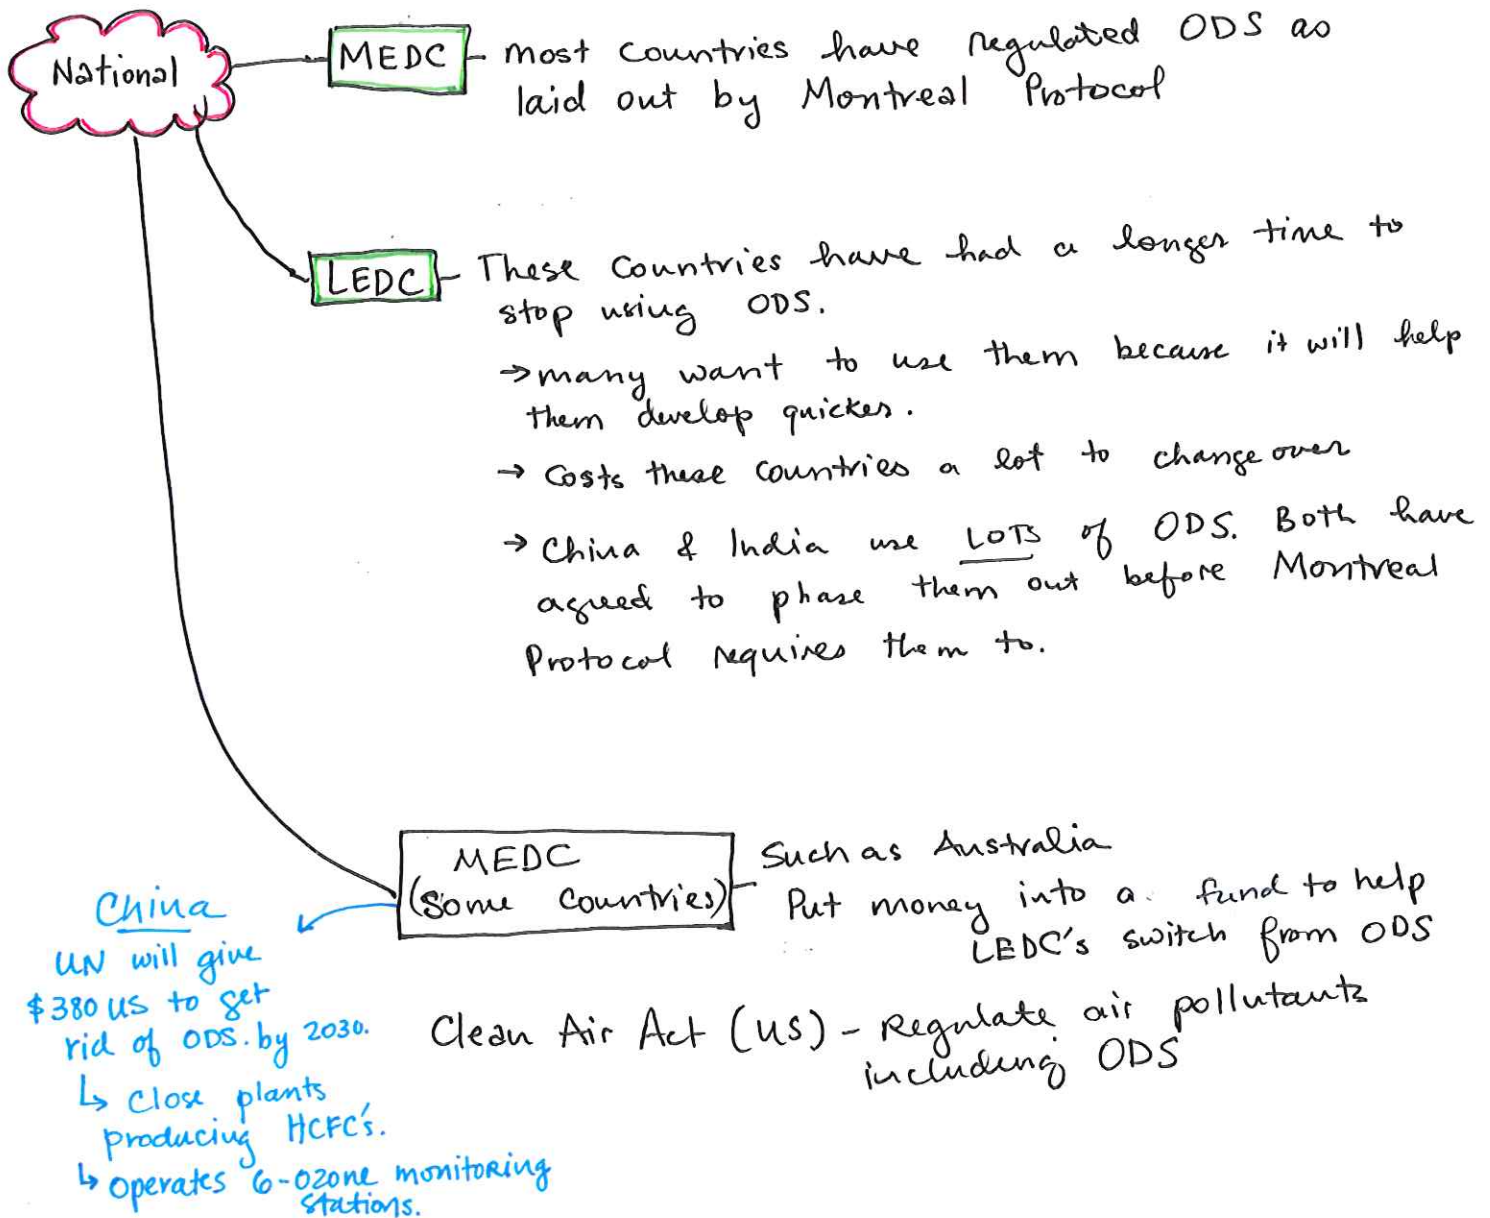 National
MEDC - most countries have regulated ODS as
laid out by Montreal Protocol
LEDC - These Countries have had a longer time to
stop using ODS.
→ many want to use them because it will help
them develop quicker.
→ Costs these countries a lot to change over
→ China & India use LOTS of ODS. Both have
agreed to phase them out before Montreal
Protocol requires them to.
MEDC
(Some Countries)
- Such as Australia
Put money into a fund to help
LEDC's switch from ODS
Clean Air Act (US) - Regulate air pollutants
including ODS
China
UN will give
$380 US to get
rid of ODS. by 2030.
↳ Close plants
producing HCFC's.
↳ Operates 6-ozone monitoring
stations.